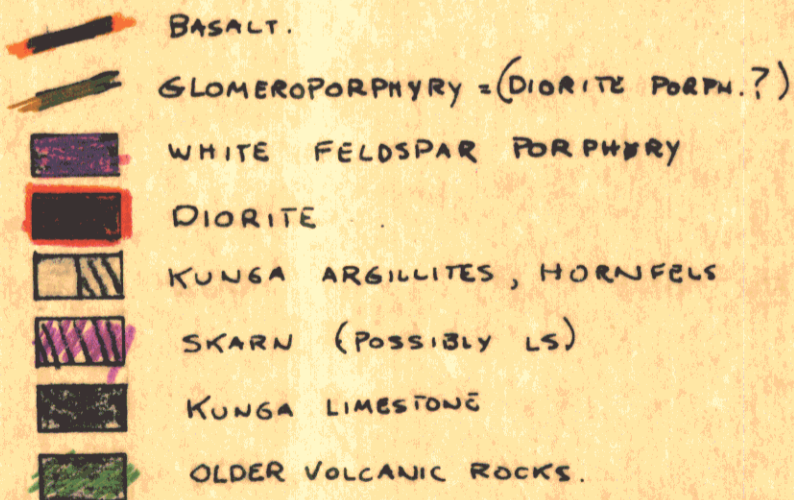 BASALT.
GLOMEROPORPHYRY = (DIORITE PORPH.?)
WHITE FELDSPAR PORPHYRY
DIORITE
KUNGA ARGILLITES, HORNFELS
SKARN (POSSIBLY LS)
KUNGA LIMESTONE
OLDER VOLCANIC ROCKS.